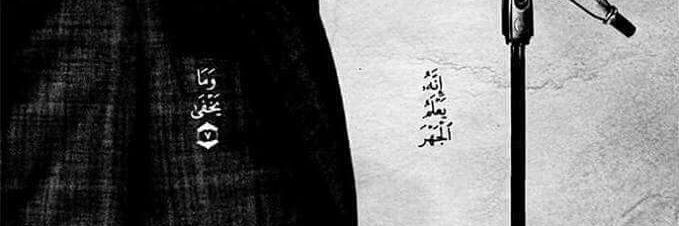 إِنَّهُۥ
يَعۡلَمُ
ٱلۡجَهۡرَ
وَمَا
يَخۡفَىٰ
٧